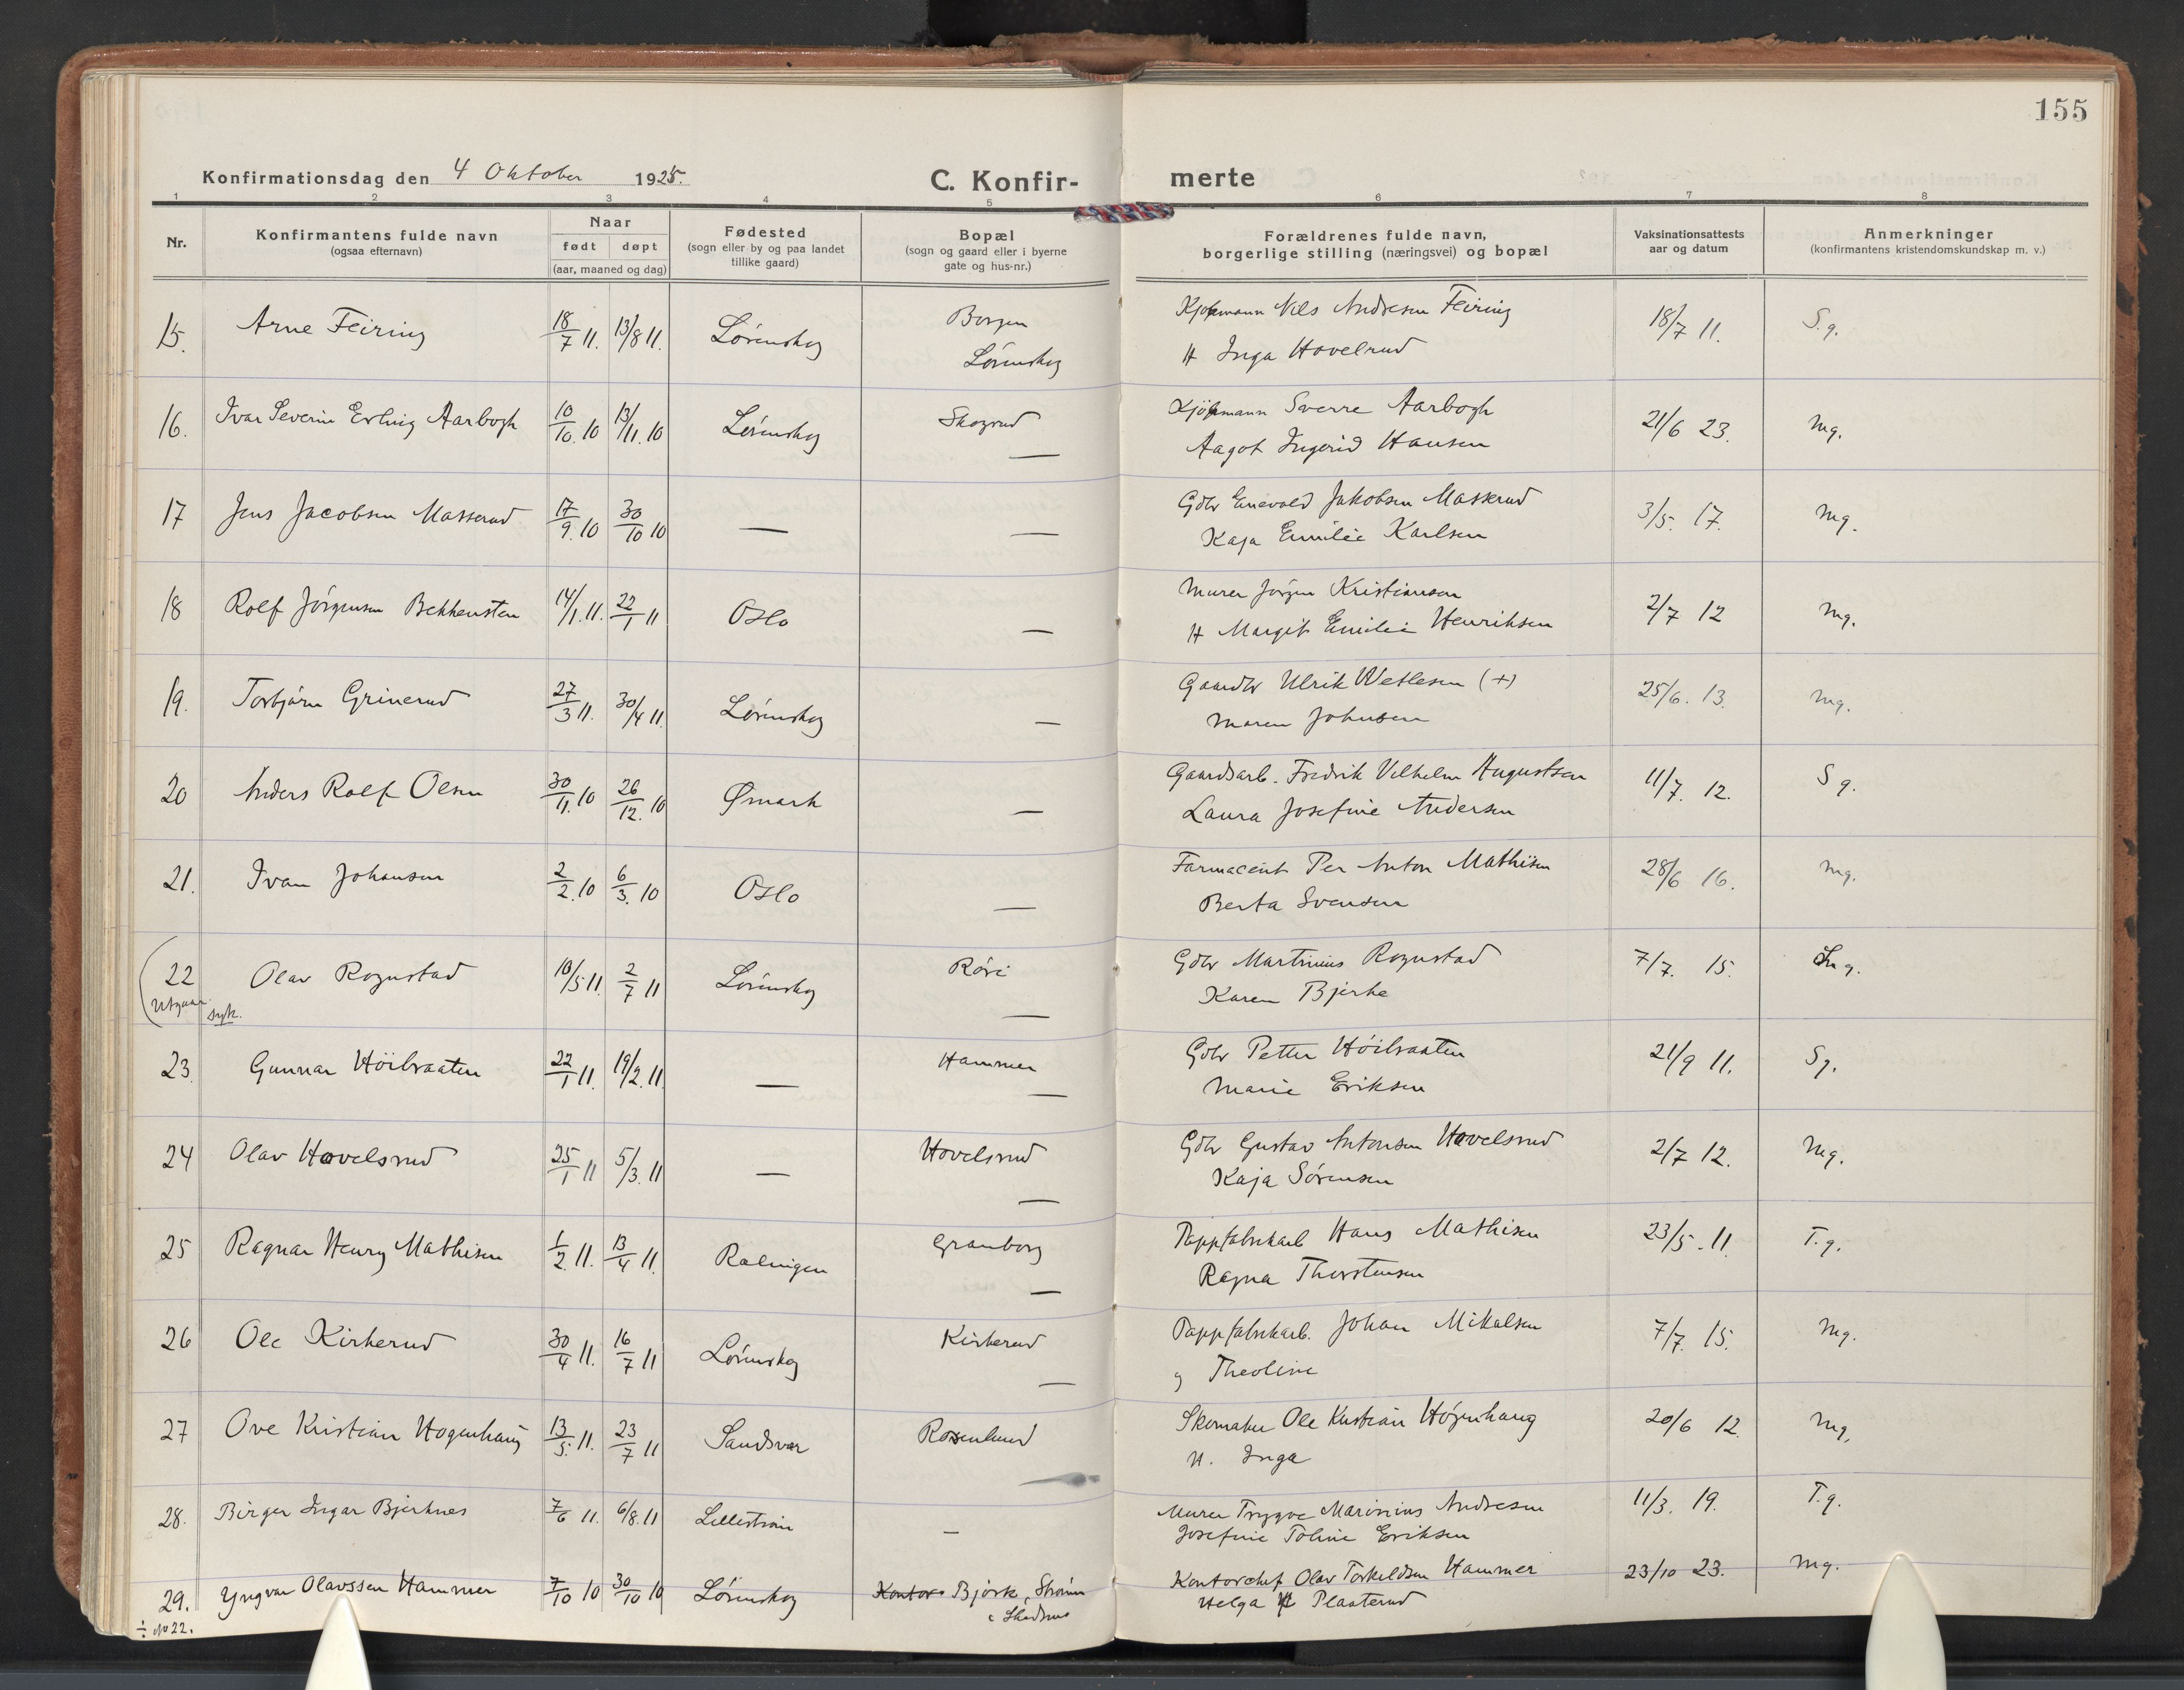 155
Konfirmationsdag den 4 Oktober 1925.
C. Konfir- merte
1 2 3 4 5 6 7 8
Nr.
Konfirmantens fulde navn
(ogsaa efternavn)
Naar
født døpt
(aar, maaned og dag)
Fødested
(sogn eller by og paa landet
tillike gaard)
Bopæl
(sogn og gaard eller i byerne
gate og hus-nr.)
Forældrenes fulde navn,
borgerlige stilling (næringsvei) og bopæl
Vaksinationsattests
aar og datum
Anmerkninger
(konfirmantens kristendomskundskap m. v.)
15. Arne Feiring 18/7 11. 13/8 11. Lørenskog Borgen Kjøpmann Nils Andresen Feiring 18/7 11. S.g.
Lørenskog H Inga Hovelsrud
16. Ivar Severin Erling Aarbogh 10/10. 10 13/11. 10 Lørenskog Skogrud Kjøpmann Sverre Aarbogh 21/6 23. Mg.
— Aagot Ingerid Hansen
17 Jens Jacobsen Masserud 17/9. 10 30/10 10 — — Gdbr Enevald Jakobsen Masserud 3/5. 17. Mg.
Kaja Emilie Karlsen
18 Rolf Jørgensen Bekkensten 14/1. 11. 22/1 11 Oslo — Murer Jørgen Kristiansen 2/7 12 Mg.
H Margit Emilie Henriksen
19. Torbjørn Grinerud 27/3 11. 30/4 11. Lørenskog — Gaardbr Ulrik Wetlesen (+) 25/6. 13. Mg.
Maren Johnsen
20 Anders Rolf Olsen 30/11. 10 26/12. 10 Ømark — Gaardsarb. Fredrik Vilhelm Augustsen 11/7. 12. S g.
Laura Josefine Andersen
21. Ivan Johansen 2/2. 10 6/3. 10 Oslo — Farmaceut Per Anton Mathisen 28/6 16. Mg.
Berta Svensen
(22 Olav Rognstad 10/5 11. 2/7 11 Lørenskog Røri Gdbr Martinius Rognstad 7/7. 15. g.
Utgaar syk. — Karen Bjerke
23. Gunnar Höibraaten 22/1 11. 19/2. 11 — Hammer Gdbr Petter Höibraaten 21/9 11. Sg.
— Marie Eriksen
24 Olav Hovelsrud 25/1 11 5/3. 11 — Hovelsrud Gdbr Gustav Antonsen Hovelsrud 2/7 12. Mg.
— Kaja Sørensen
25 Ragnar Henry Mathisen 1/2. 11. 13/4 11. Rælingen Granborg Pappfabrikarb Hans Mathisen 23/5. 11. T.g.
— Ragna Thorstensen
26 Ole Kirkerud 30/4 11. 16/7 11 Lørenskog Kirkerud Pappfabrikarb. Johan Mikalsen 7/7. 15. Mg.
— og Theoline
27 Ove Kristian Hogenhaug 13/5. 11. 23/7 11 Sandsvær Rosenlund Skomaker Ole Kristian Høgenhaug 20/6 12. Mg.
H. Inga
28. Birger Ingar Bjerknes 7/6 11. 6/8. 11 Lillestrøm — Murer Trygve Marinius Andresen 11/3. 19. T.g.
Josefine Toline Eriksen
29. Yngvar Olavssen Hammer 7/10 10 30/10 10 Lørenskog Kontor Bjørk, Strøm Kontorchef Olav Torkeldsen Hammer 23/10 23. Mg.
i Skedsmo Helga Plaaterud
÷ No 22.